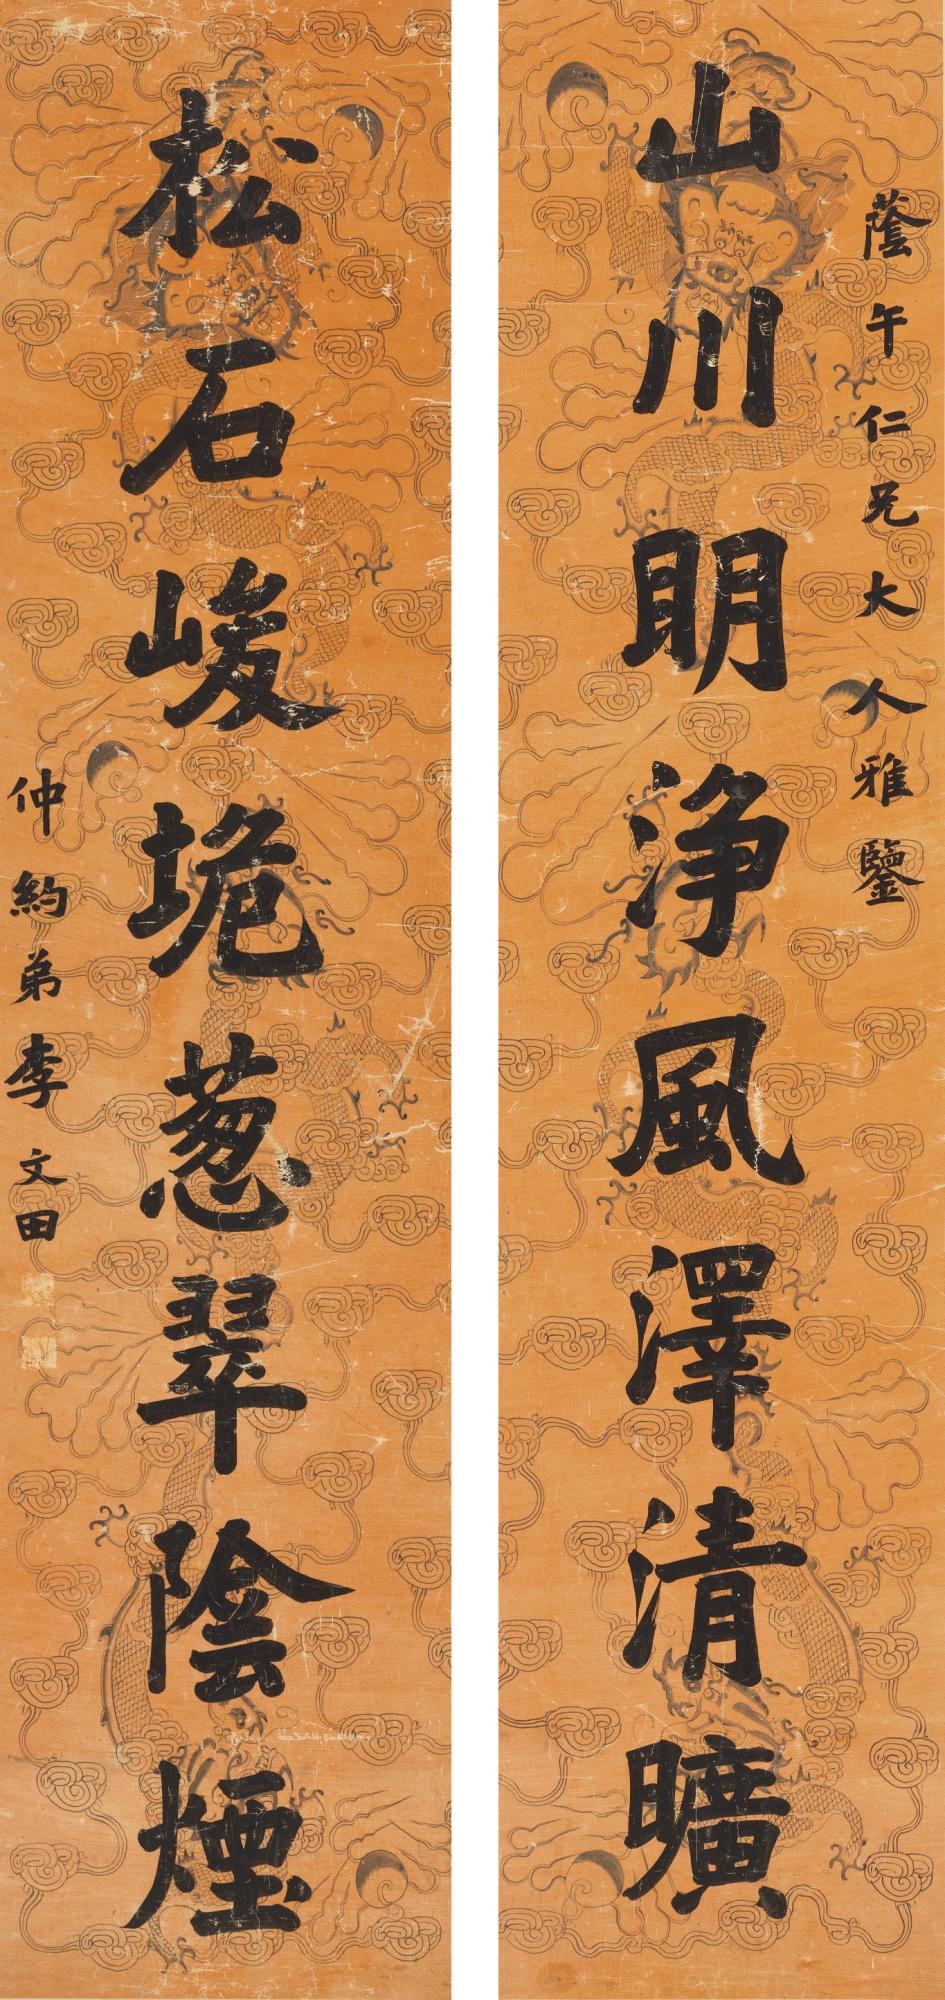 蔭午仁兄大人雅鑒
山川明淨風澤清曠
松石峻垝葱翠陰煙
仲約弟李文田